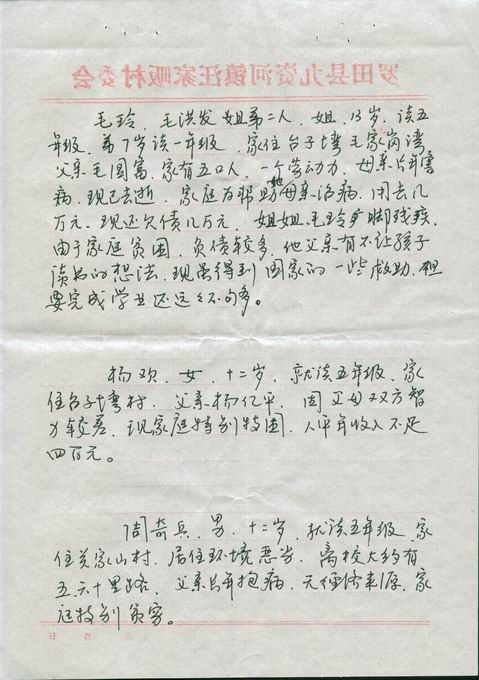 罗田县九资河镇汪家畈村委会
毛玲、毛洪发姐弟二人、姐、13岁、读五
年级、弟7岁读一年级、家住台子塆毛家岗湾
父亲毛国富、家有五口人、一个劳动力、母亲长年害
病、现已去逝、家庭为帮助她母亲治病、用去几
万元、现还欠债几万元、姐姐毛玲 脚残疾、
由于家庭贫困、负债较多、他父亲有不让孩子
读书的想法、现虽得到国家的一些救助、但
要完成学业还远远不够多。
杨欢、女、十二岁、就读五年级、家
住台子塆村、父亲杨亿平、因父母双方智
力较差、现家庭特别特困、人平年收入不足
四百元。
周奇兵、男、十二岁、就读五年级、家
住关家山村、居住环境恶劣、离校大约有
五六十里路、父亲长年抱病、无经济来源、家
庭特别贫穷。
年 月 日